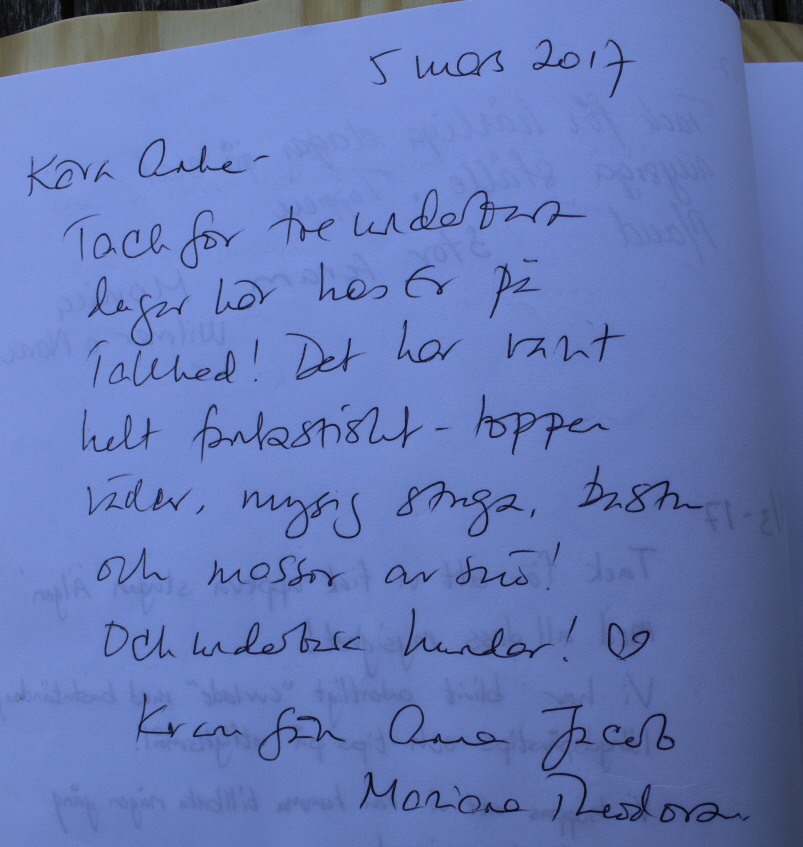 5 mars 2017
Kära Anke -
Tack för tre underbara
dagar här hos Er på
Tallhed! Det har varit
helt fantastiskt - toppen
väder, mysig stuga, bastu
och massor av snö!
Och underbara hundar! ♡
Kram från Anna Jacob
Mariana Theodora